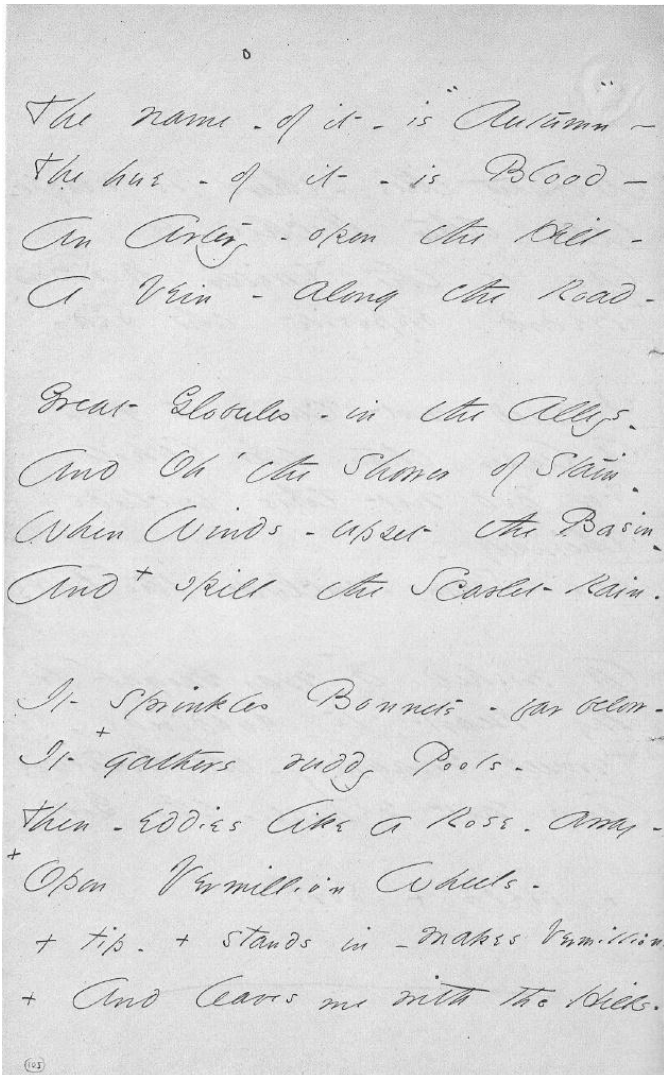 The name - of it - is "Autumn" -
The hue - of it - is Blood -
An Artery - opon the Hill -
A Vein - along the Road -
Great Globules - in the Alleys -
And Oh, the Shower of Stain -
When Winds - upset the Basin -
And + spill the Scarlet Rain -
It sprinkles Bonnets - far below -
It + gathers ruddy Pools -
Then - eddies like a Rose - away -
+ Opon Vermillion Wheels -
+ tip - + stands in - makes Vermillion
+ And leaves me with the Hills -
105